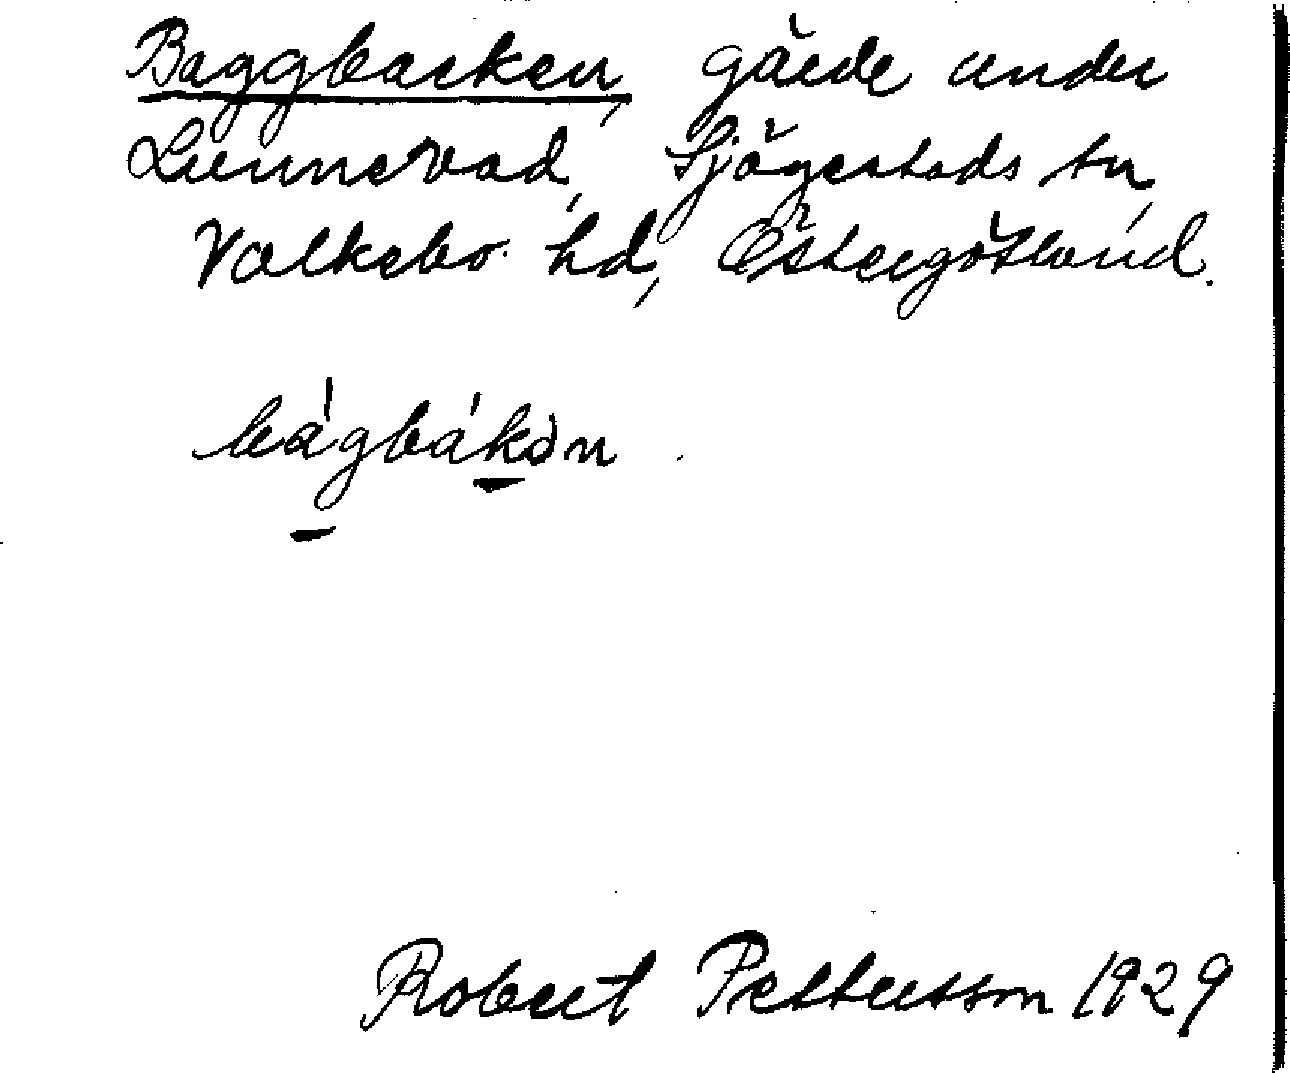 Baggbacken, gärde under
Lunnevad, Sjögestads sn,
Valkebo hd, Östergötland.
bágbákən
Robert Pettersson 1929